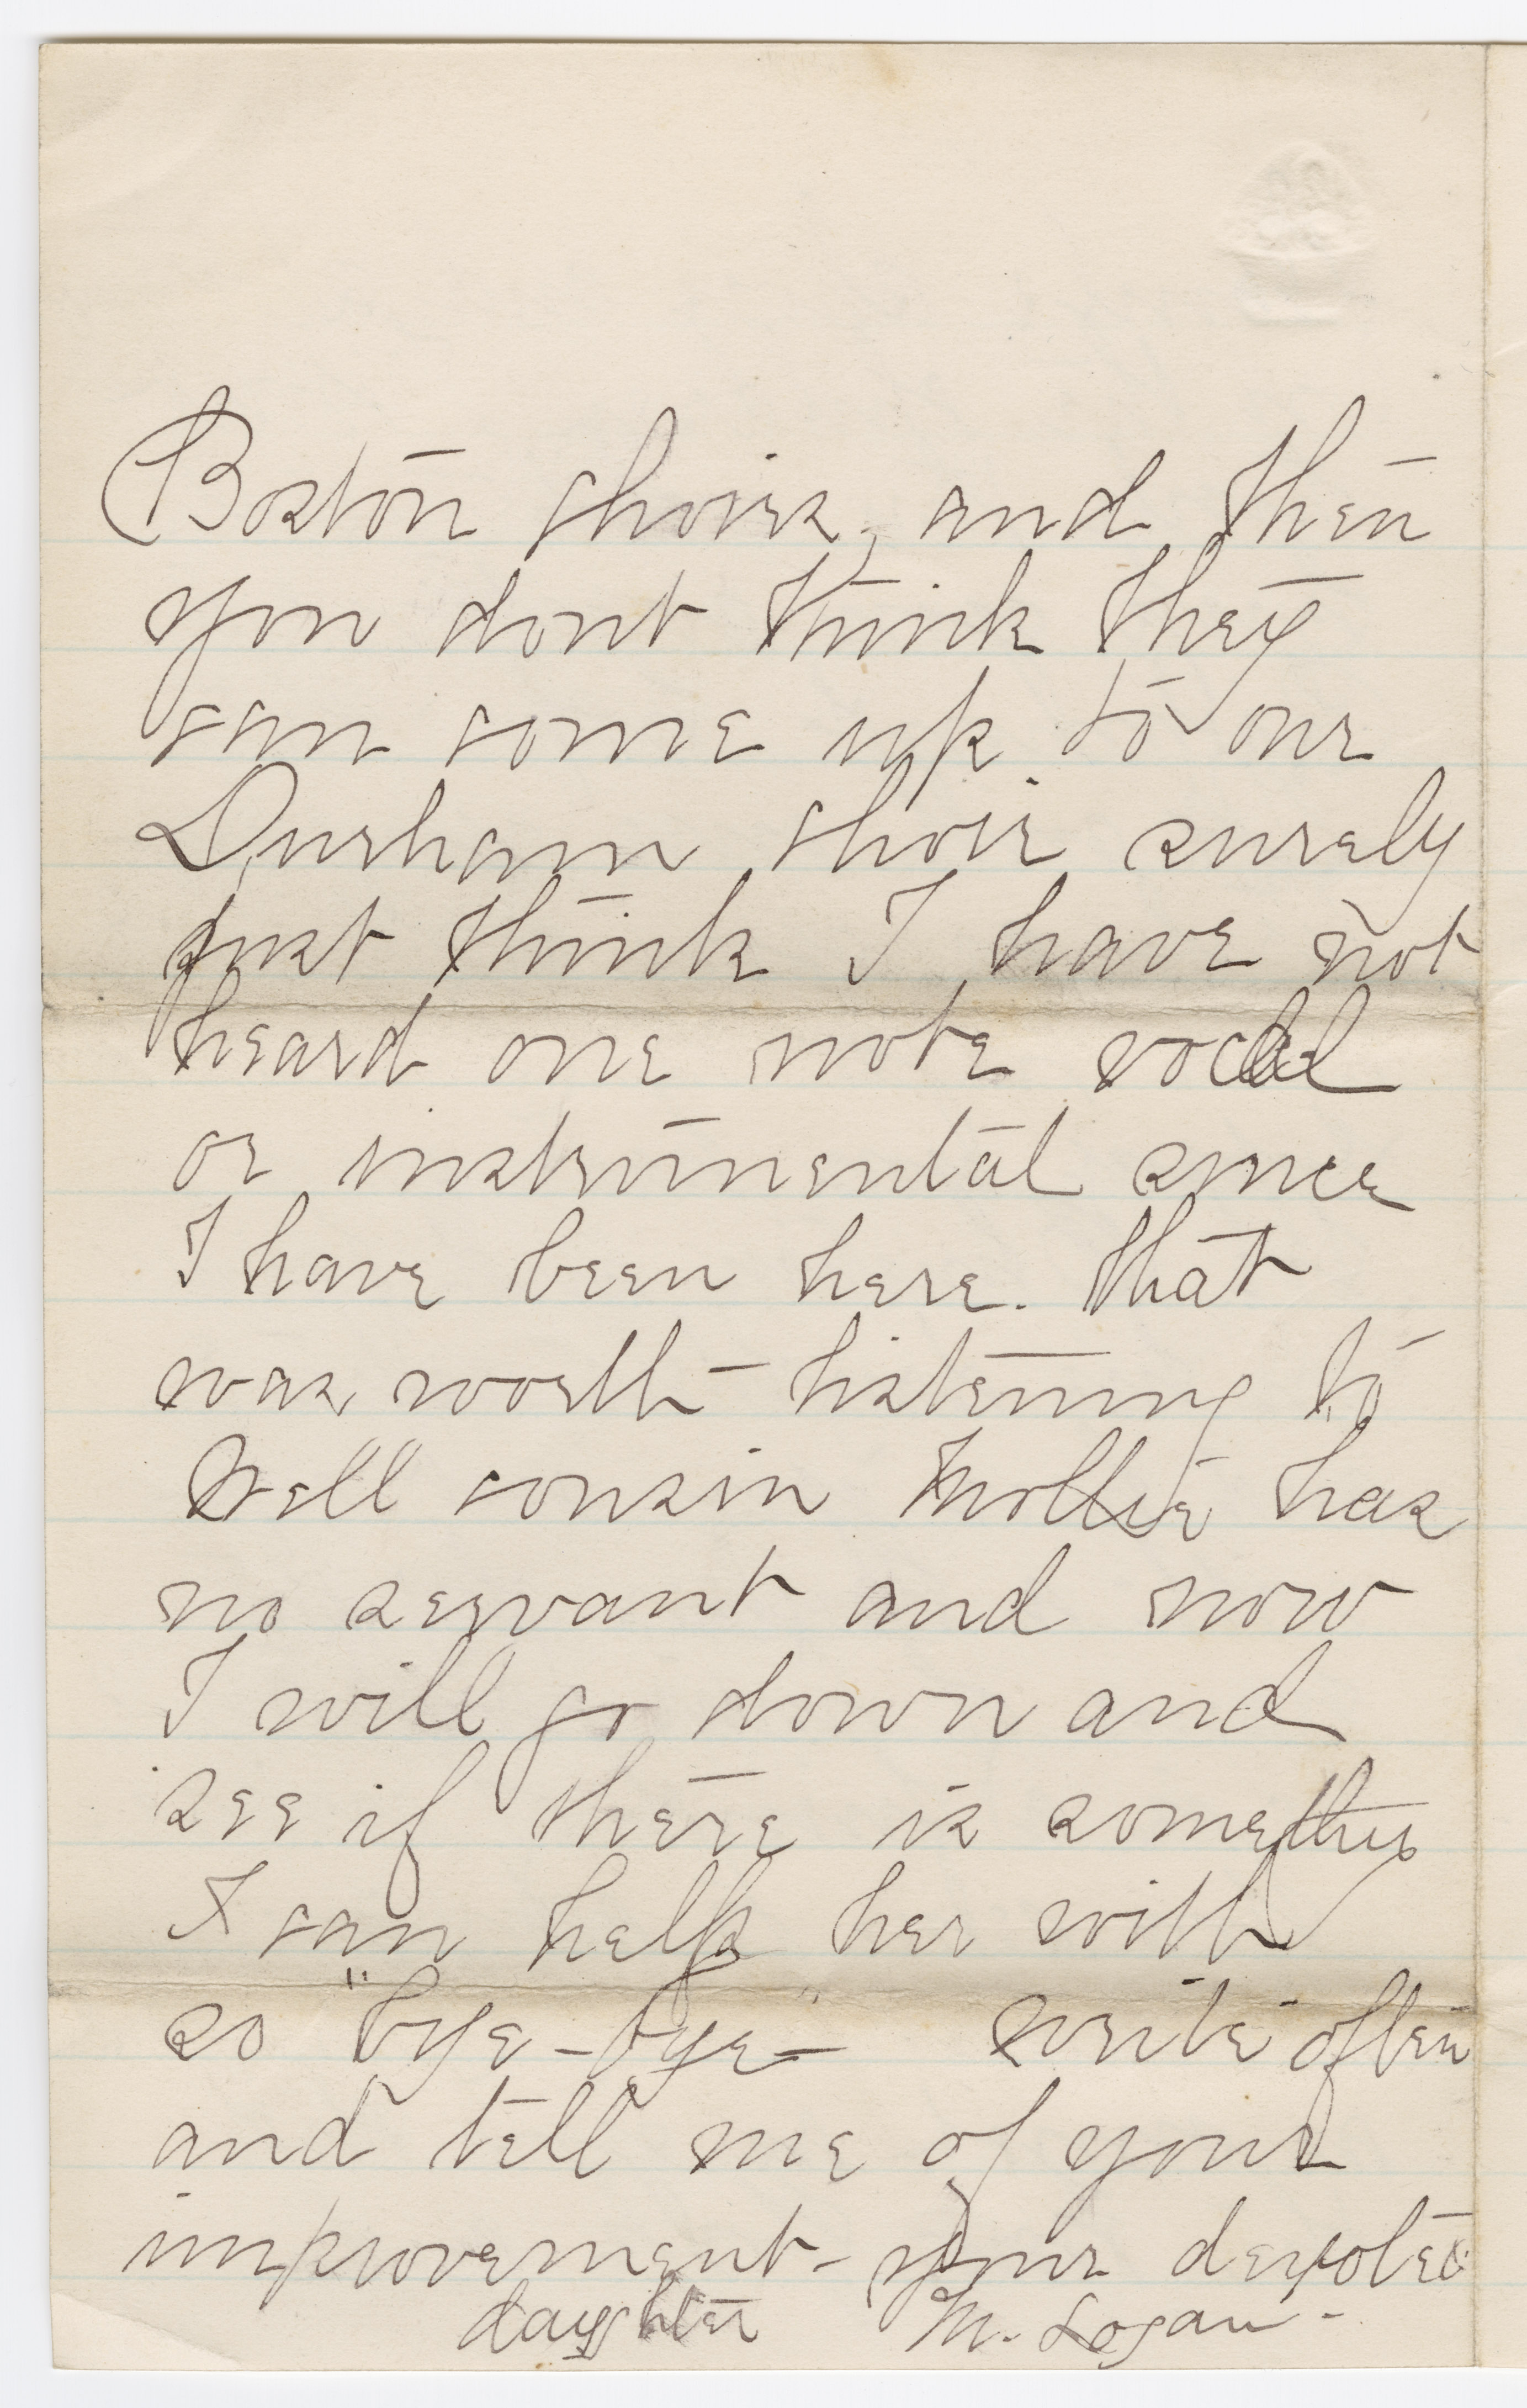 Boston choirs, and then
you dont think they
can come up to our
Durham choir surely
just think I have not
heard one note vocal
or instrumental since
I have been here. that
was worth listening to
Well cousin Mollie has
no servant and now
I will go down and
see if there is
I can help her with
so "bye-bye-" write often
and tell me of your
improvement - your devoted
daughter M. Logan -